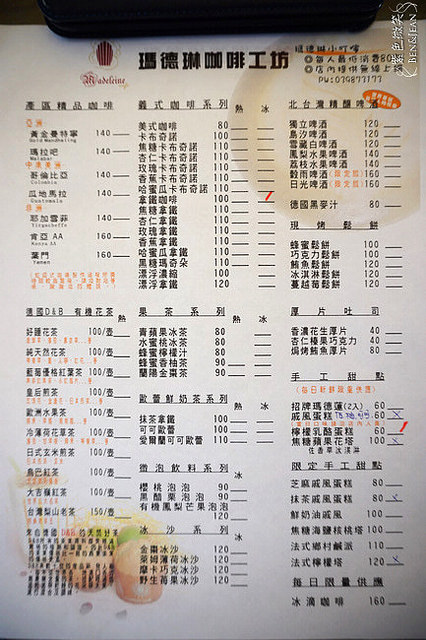 瑪德琳咖啡工坊
Madeleine
紫色微笑
BEN&JEAN
瑪德琳小叮嚀
◎每人最低消費80
◎店內提供無線上網
產區精品咖啡
亞洲
黃金曼特寧 140
瑪拉吧 140
Malabar
中南美洲
哥倫比亞 140
Colombia
瓜地馬拉 140
Guatemala
非洲
耶加雪菲 140
肯亞 AA 160
Kenya AA
葉門 160
Yemen
義式咖啡系列 熱 冰
美式咖啡 80
卡布奇諾 100
焦糖卡布奇諾 110
杏仁卡布奇諾 110
玫瑰卡布奇諾 110
香蕉卡布奇諾 110
哈蜜瓜卡布奇諾 110
拿鐵咖啡 100
焦糖拿鐵 110
杏仁拿鐵 110
玫瑰拿鐵 110
香蕉拿鐵 110
哈蜜瓜拿鐵 110
黑糖瑪奇朵 110
漂浮濃縮 100
漂浮拿鐵 120
北台灣精釀啤酒
獨立啤酒 120
烏汐啤酒 120
雪藏白啤酒 120
鳳梨水果啤酒 140
荔枝水果啤酒 140
穀雨啤酒(限定版) 160
日光啤酒(限定版) 160
德國黑麥汁 80
現烤鬆餅
蜂蜜鬆餅 100
巧克力鬆餅 100
鮪魚鬆餅 120
冰淇淋鬆餅 120
蔓越莓鬆餅 120
德國D&B 有機花茶 熱
好睡花茶 100/壺
純天然花茶 100/壺
藍莓優格紅葉茶 100/壺
皇后煎茶 100/壺
歐洲水果茶 100/壺
冷薄荷花草茶 100/壺
日式玄米煎茶 100/壺
烏巴紅茶 100/壺
大吉嶺紅茶 100/壺
台灣梨山老茶 150/壺
果茶系列 熱 冰
青蘋果冰茶 80
水蜜桃冰茶 80
蜂蜜檸檬汁 80
蜂蜜香柚茶 100
蘭陽金棗茶 100
歐蕾鮮奶茶系列 熱 冰
抹茶拿鐵 100
可可歐蕾 100
愛爾蘭可可歐蕾 110
微泡飲料系列 冰
櫻桃泡泡 90
黑醋栗泡泡 90
有機鳳梨芒果泡泡 120
冰沙系列 冰
金棗冰沙 120
萊姆薄荷冰沙 120
摩卡巧克冰沙 120
野生莓果冰沙 120
厚片吐司
香濃花生厚片 40
杏仁榛果巧克力 40
焗烤鮪魚厚片 80
手工甜點
(每日新鮮限量供應)
招牌瑪德蓮(2入) 60
戚風蛋糕 60
檸檬乳酪蛋糕 60
焦糖蘋果花塔 100
佐香草冰淇淋
限定手工甜點
芝麻戚風蛋糕 80
抹茶戚風蛋糕 80
鮮奶油戚風 100
焦糖海鹽核桃塔 100
法式鄉村鹹派 110
法式檸檬塔 120
每日限量供應
冰滴咖啡 160